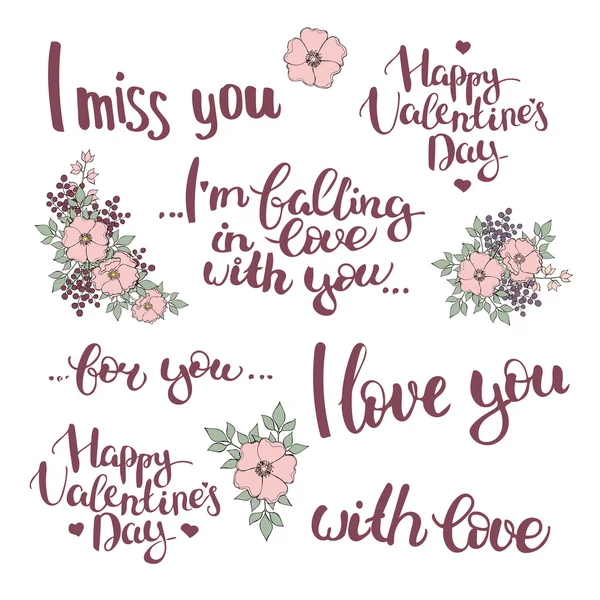 I miss you
Happy
Valentine's
Day
...I'm falling
in love
with you...
...for you...
I love you
Happy
Valentine's
Day
with love